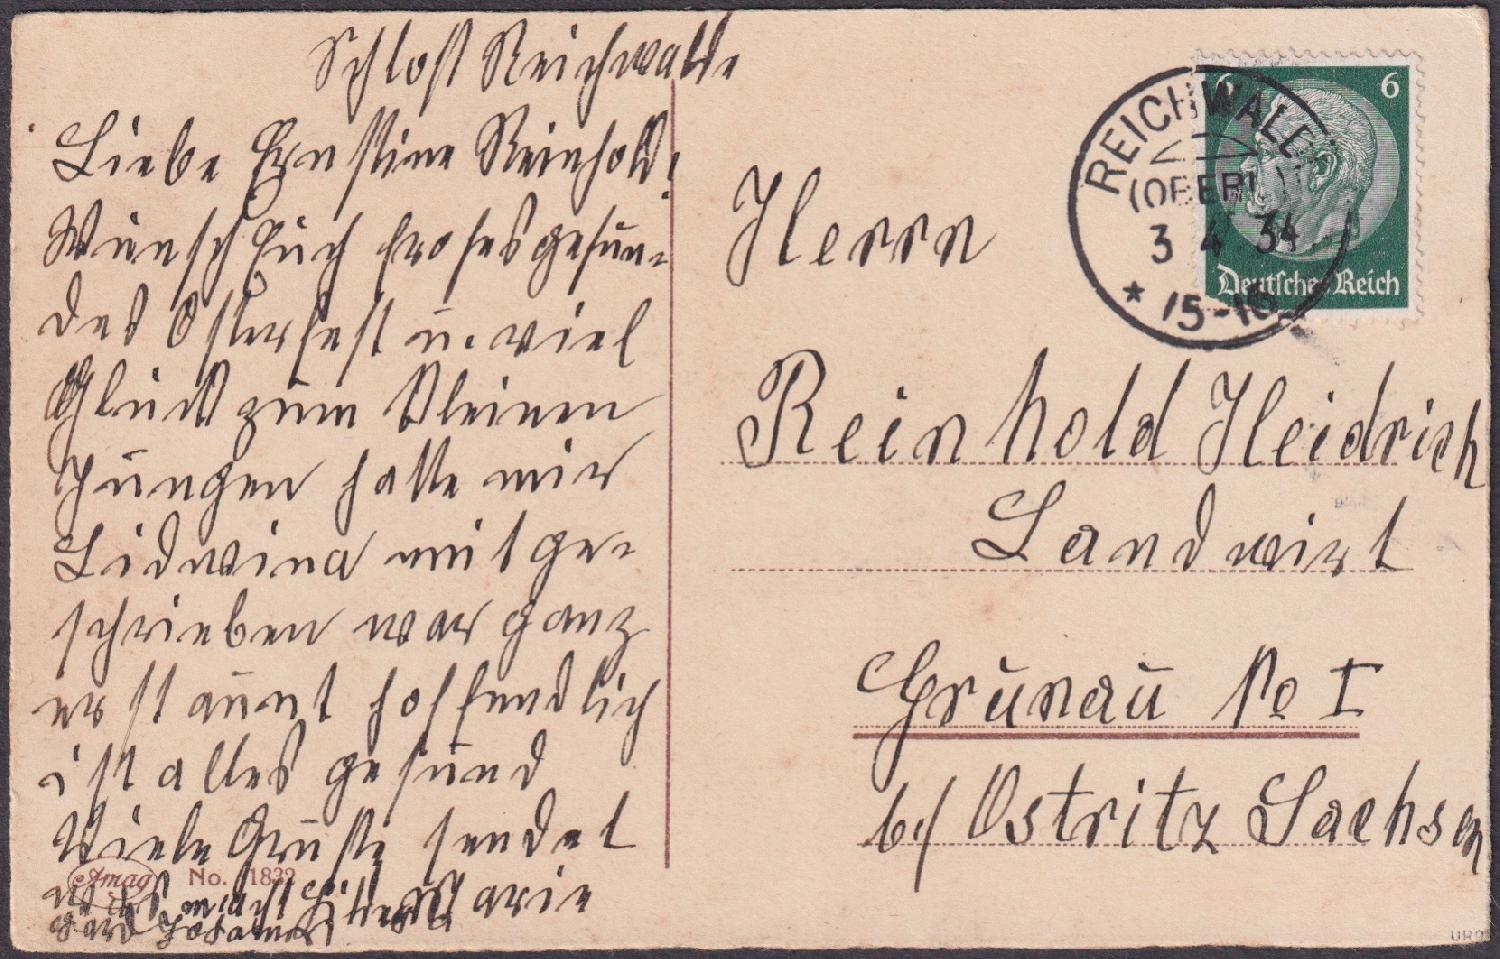 Schloß Reichwalde
Liebe Ernstine Reinhold!
Wünsch Euch frohes gesun-
des Osterfest u. viel
Glück zum kleinen
Jungen hatte mir
Lidwina mit ge-
schrieben war ganz
erstaunt hoffendlich
ist alles gesund
Viele Grüße sendet
Marie
was macht
Amag No. 1832
6 6
Deutsches Reich
REICHWALDE
(OBERL.)
3 4 34
* 15-16
Herrn
Reinhold Heidrich
Landwirt
Grünau No I
b/ Ostritz Sachsen